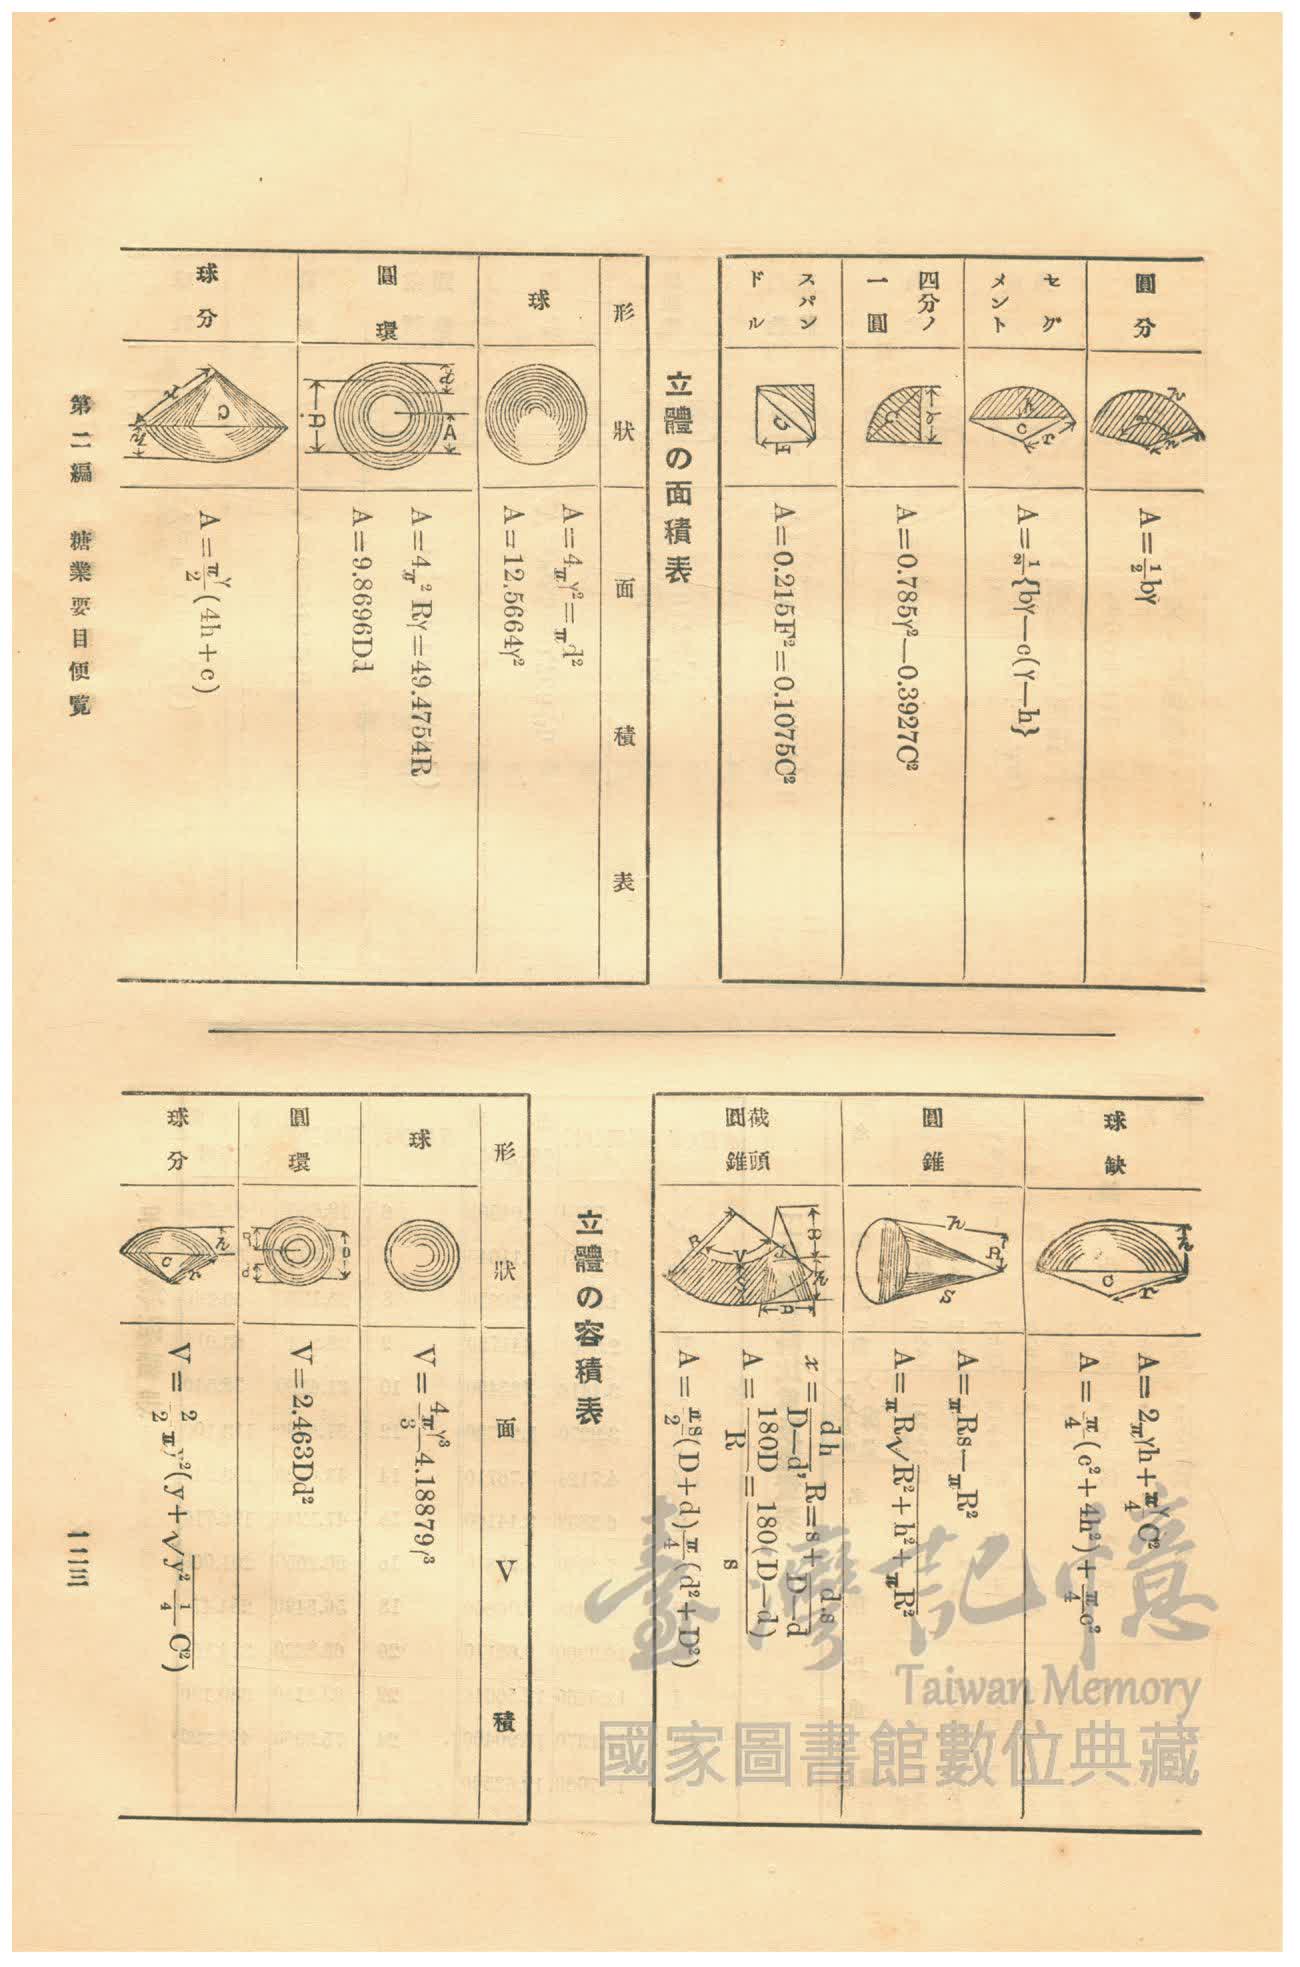 圓分
A=½bγ
セグメント
A=½{bγ—c(γ—h}
四分ノ一圓
A=0.785γ²—0.3927C²
スパンドル
A=0.215F²=0.1075C²
立體の面積表
形狀
面積表
球
A=4πγ²=πd²
A=12.5664γ²
圓環
A=4π²Rγ=49.4754R
A=9.8696Dd
球分
A=πγ/2(4h+c)
球缺
A=2πγh+π/4γC²
A=π/4(c²+4h²)+π/4c²
圓錐
A=πRs—πR²
A=πR√R²+h²+πR²
截頭圓錐
x=dh/D—d,R=s+d.s/D—d
A=180D/R=180(D—d)/s
A=πs/2(D+d)π/4(d²+D²)
立體の容積表
形狀
面V積
球
V=4πγ³/3—4.18879γ³
圓環
V=2.463Dd²
球分
V=2/2πγ²(y+√y²1/4—C²)
第二編 糖業要目便覧
一一三
臺灣記憶
Taiwan Memory
國家圖書館數位典藏